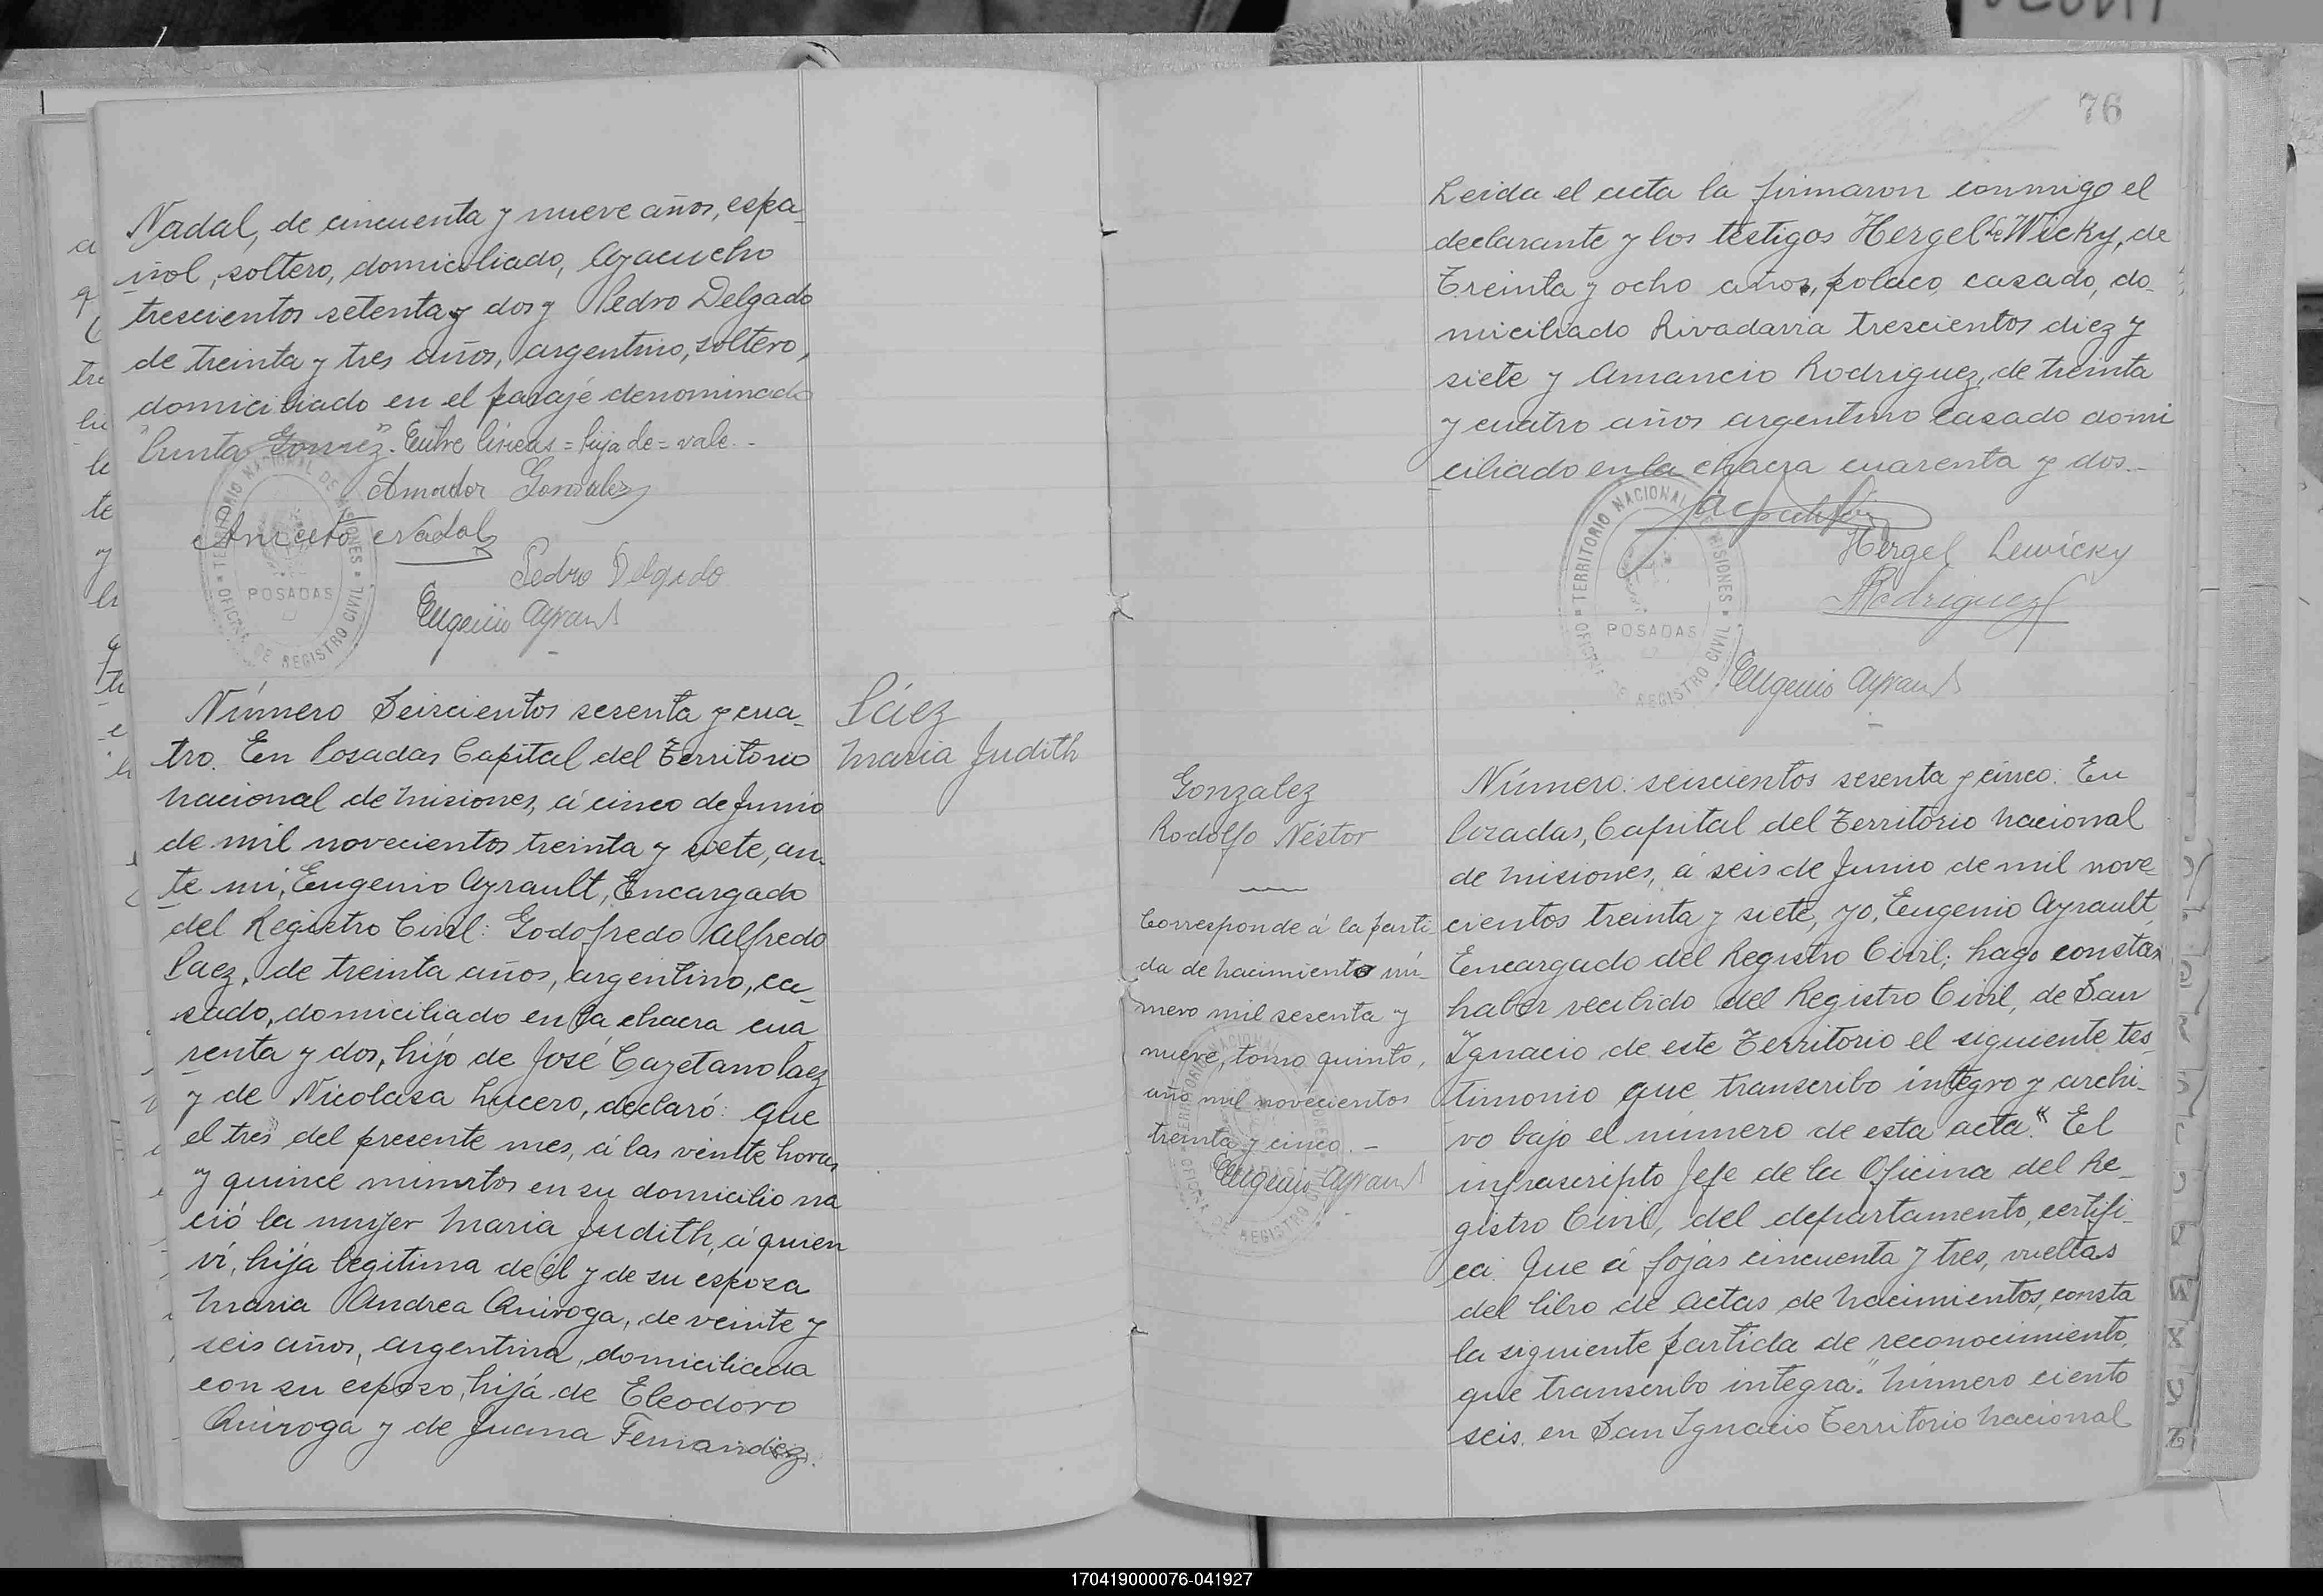 Nadal, de cincuenta y nueve años, espa_
ñol, soltero, domiciliado, Ayacucho
trescientos setenta y dos y Pedro Delgado
de treinta y tres años, argentino, soltero,
domiciliado en el paraje denominado
"Punta Gomez". Entre lineas = hija de = vale. -
Amador Gonzalez
Aniceto Nadal
Pedro Delgado
Eugenio Ayrault
TERRITORIO NACIONAL DE MISIONES
POSADAS
OFICINA DE REGISTRO CIVIL
Número Seiscientos sesenta y cua_
tro. En Posadas Capital del Territorio
Nacional de Misiones, á cinco de Junio
de mil novecientos treinta y siete, an_
te mi, Eugenio Ayrault, Encargado
del Registro Civil: Godofredo Alfredo
Paez, de treinta años, argentino, ca_
sado, domiciliado en la chacra cua
renta y dos, hijo de José Cayetano Paez
y de Nicolasa Lucero, declaró: que
el tres del presente mes, á las veinte horas
y quince minutos en su domicilio na
ció la mujer Maria Judith, á quien
ví, hija legitima de él y de su esposa
Maria Andrea Quiroga, de veinte y
seis años, argentina, domiciliada
con su esposo, hija de Eleodoro
Quiroga y de Juana Fernandez.
Páez
Maria Judith
76
Leida el acta la firmaron conmigo el
declarante y los testigos Hergel Le Wicky, de
Treinta y ocho años, polaco, casado, do_
miciliado Rivadavia trescientos diez y
siete y Amancio Rodriguez, de treinta
y cuatro años argentino casado domi
ciliado en la chacra cuarenta y dos.-
Hergel Lewicky
ARodriguez
Eugenio Ayrault
TERRITORIO NACIONAL DE MISIONES
POSADAS
OFICINA DE REGISTRO CIVIL
Gonzalez
Rodolfo Néstor
Corresponde á la parti
da de Nacimiento nú_
mero mil sesenta y
nueve, tomo quinto,
año mil novecientos
treinta y cinco. -
Eugenio Ayrault
Número: seiscientos sesenta y cinco: En
Posadas, Capital del Territorio Nacional
de Misiones, á seis de Junio de mil nove_
cientos treinta y siete, yo, Eugenio Ayrault
Encargado del Registro Civil; hago constar
haber recibido del Registro Civil, de San
Ignacio de este Territorio el siguiente tes_
timonio que transcribo integro y archi_
vo bajo el número de esta acta. "El
infrascripto Jefe de la Oficina del Re_
gistro Civil, del departamento, certifi_
ca: Que á fojas cincuenta y tres, vueltas
del libro de actas de Nacimientos, consta
la siguiente partida de reconocimiento,
que transcribo integra: "Número ciento
seis. en San Ignacio Territorio Nacional
170419000076-041927